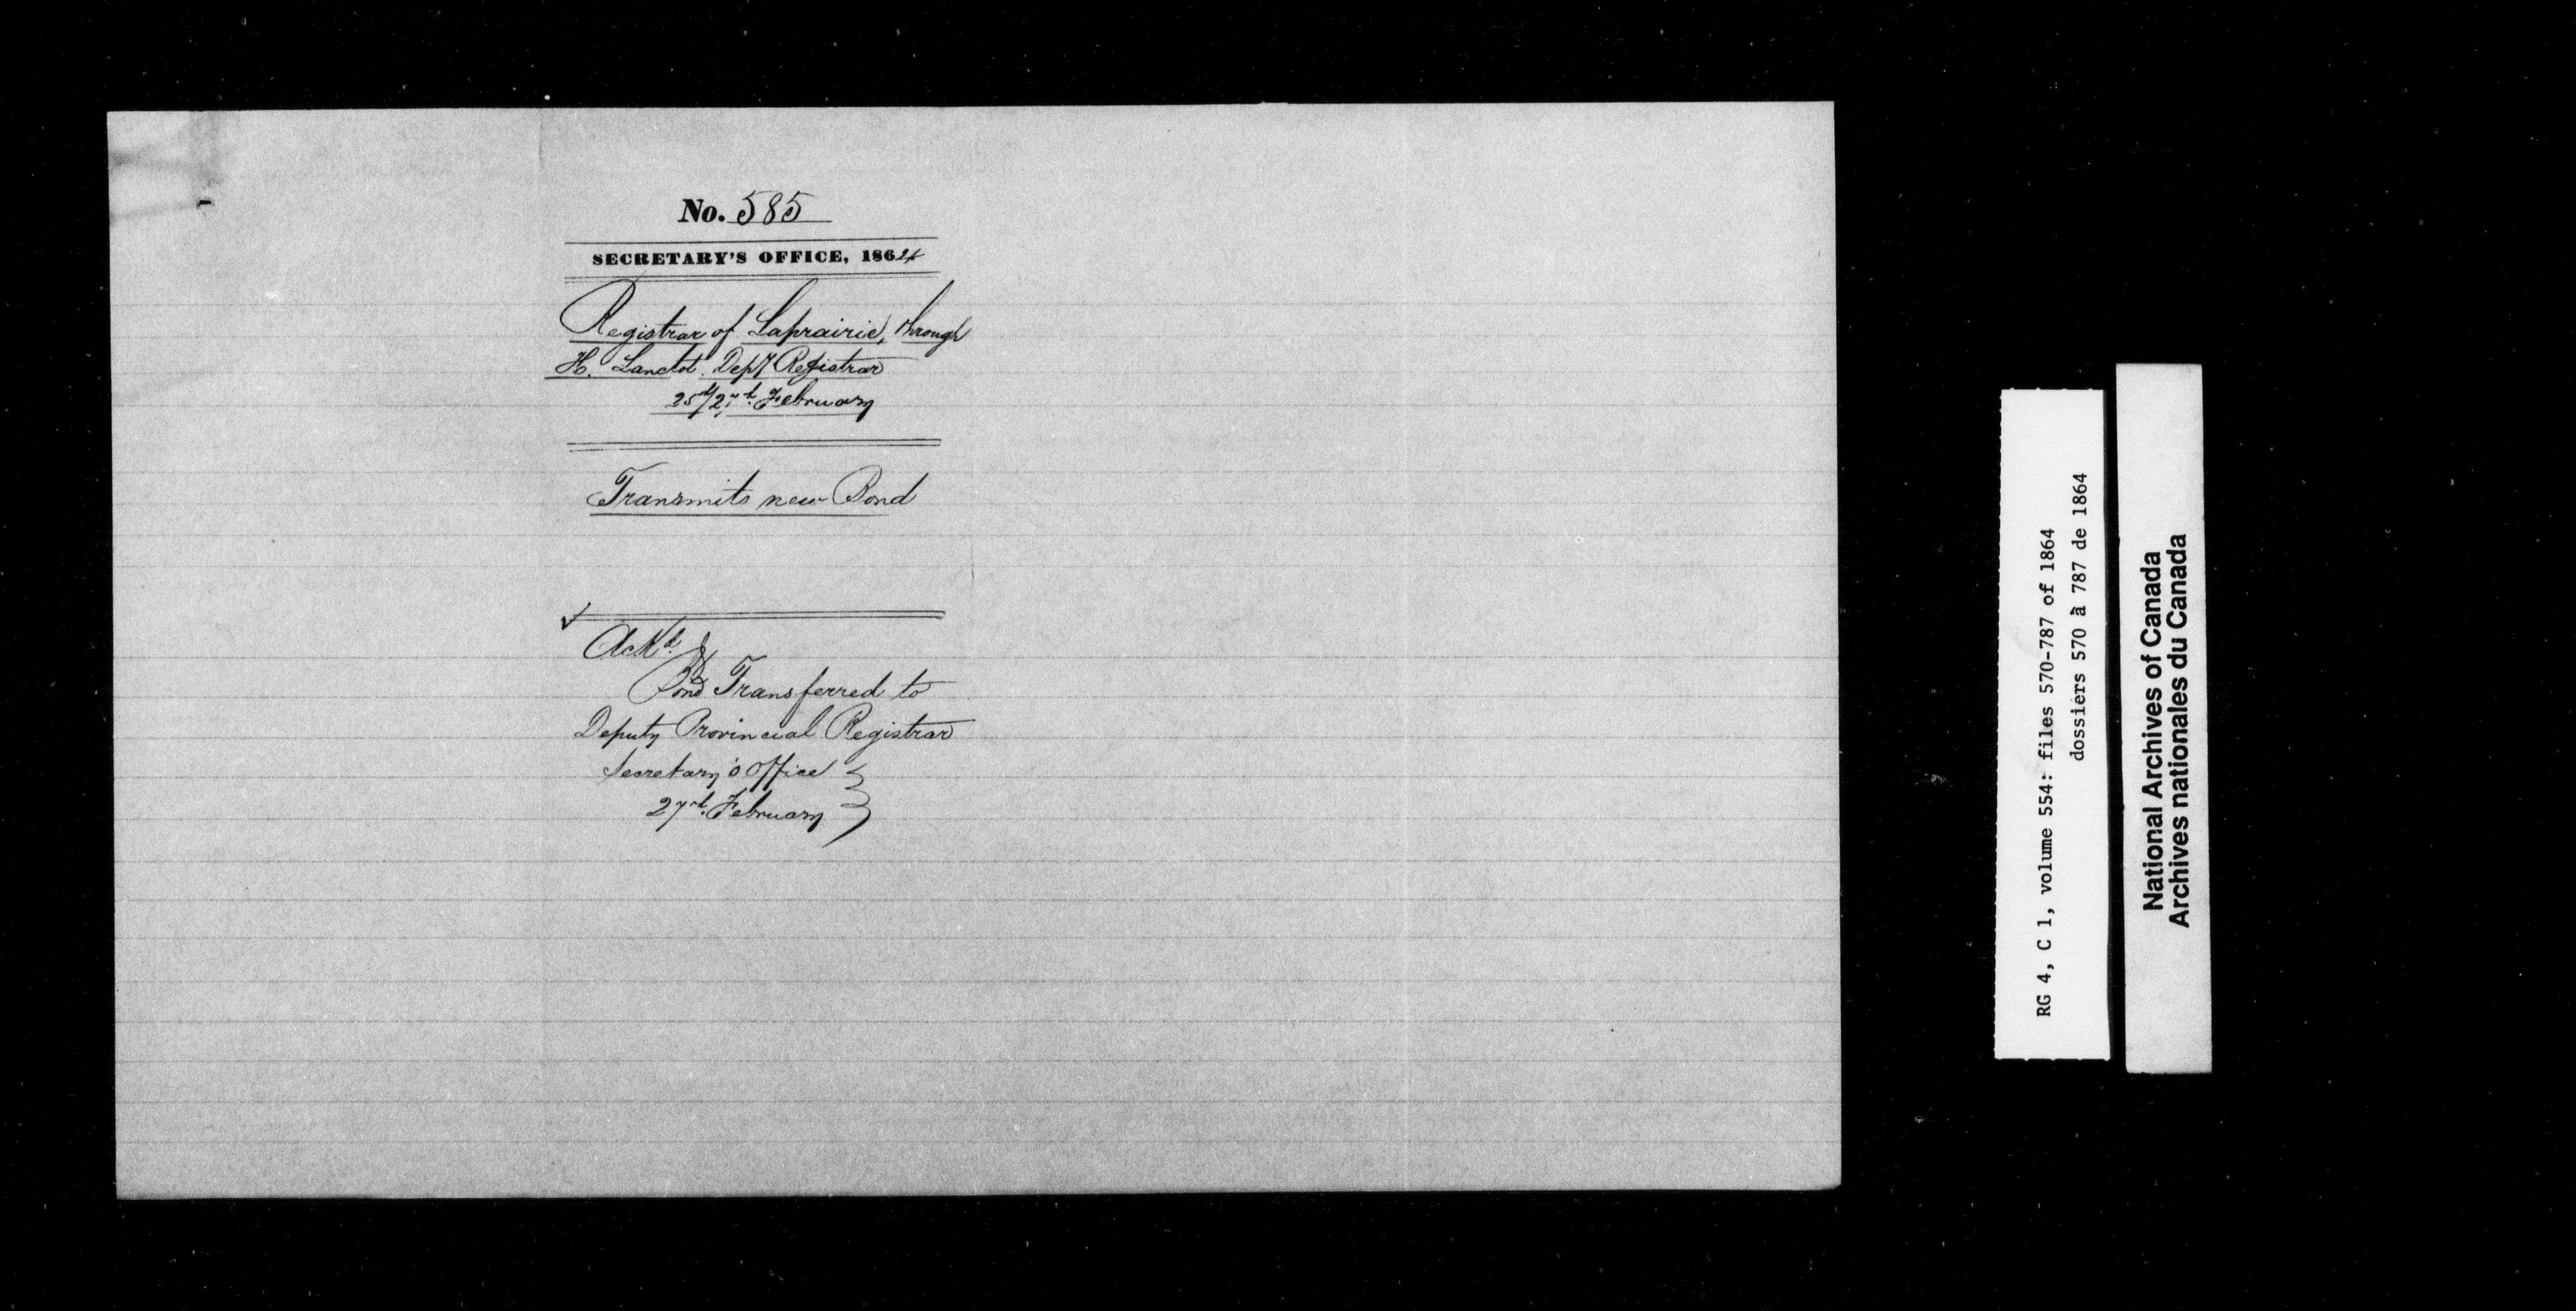 No. 585
SECRETARY'S OFFICE, 1864
Registrar of Laprairie, through
H. Lanctot. Depy Registrar
25th/27th February
Transmits new Bond
Ackd. &
Bond Transferred to
Deputy Provincial Registrar
Secretary's Office
27th. February
RG 4, C 1, volume 554: files 570-787 of 1864
dossiers 570 à 787 de 1864
National Archives of Canada
Archives nationales du Canada